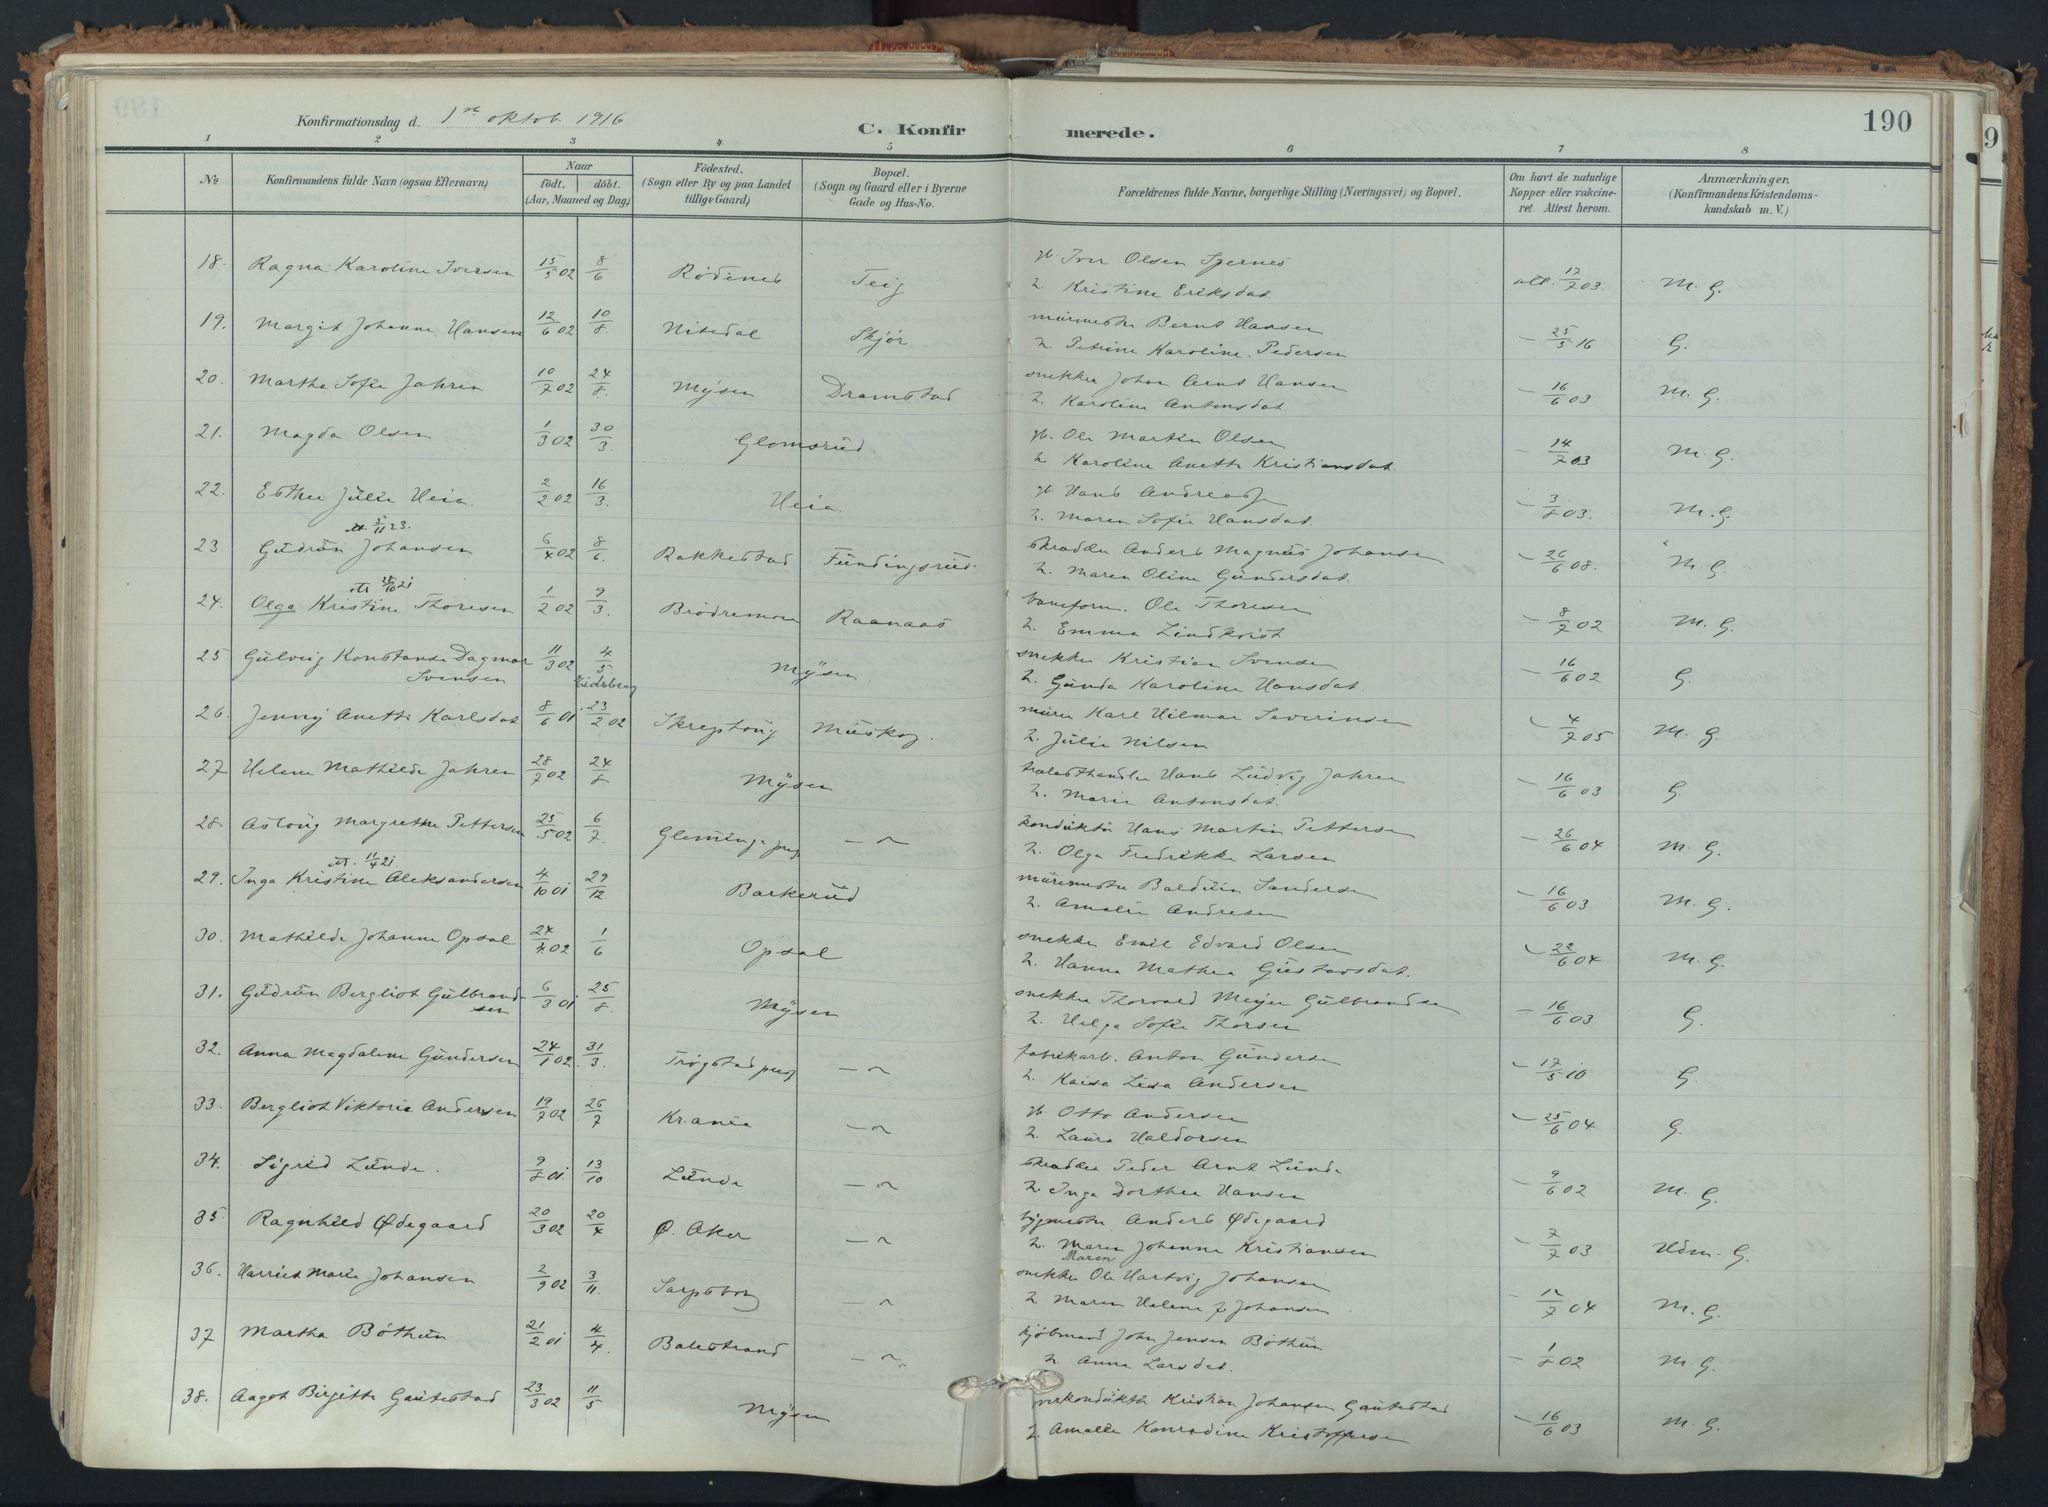 190
Konfirmationsdag d. 1ste oktob. 1916
C. Konfirmerede.
1 2 3 4 5 6 7 8
No
Konfirmandens fulde Navn (ogsaa Efternavn)
Naar
født. døbt.
(Aar, Maaned og Dag)
Fødested.
(Sogn eller By og paa Landet
tillige Gaard)
Bopæl.
(Sogn og Gaard eller i Byerne
Gade og Hus-No.
Forældrenes fulde Navne, borgerlige Stilling (Næringsvei) og Bopæl.
Om havt de naturlige
Kopper eller vakcine-
ret Attest herom.
Anmærkninger.
(Konfirmandens Kristendoms-
kundskab m. V.)
18. Ragna Karoline Iversen 15/5 02 8/6 Rødenes Teig gb. Iver Olsen 17/7 03 M. G.
h. Kristine Eriksdat.
19. Margit Johanne Hansen 12/6 02 10/8 Nitedal Skjør murmester Bernt Hansen – 25/5 16 G.
h. Petrine Karoline Pedersen
20. Martha Sofie Jahren 10/7 02 24/8. Mysen Dramstad snekker Johan Arnt Hansen – 16/6 03 M. G.
h. Karoline Antonsdat.
21. Magda Olsen 1/3 02 30/3 Glomsrud. gb. Ole Martin Olsen – 14/7 03 M. G.
h. Karoline Anette Kristiansdat.
22. Esther Julie Heia. 2/2 02 16/3. Heia. gb. Hans Andreas – 3/8 03. M. G.
h. Maren Sofie Hansdat.
att. 5/11 23.
23. Gudrun Johansen 6/4 02 8/6. Rakkestad Fundingsrud. skrædder Anders Magnus Johansen – 26/6 08. M. G.
h. Maren Oline Gundersdat.
att 28/10 21
24. Olga Kristine Thoresen 1/2 02 9/3. Brødremoen Raanaas baneform. Ole Thoresen – 8/7 02 M. G.
h. Emma Lindkvist
25 Gulveig Konstanse Dagmar Svensen 11/3 02 4/5 Eidsberg Mysen. snekker Kristian Svensen – 16/6 02 G.
h. Gunda Karoline Hansdat.
26. Jenny Anette Karlsdat 8/6 01. 23/2 02 Skreptoug Muskog. murer Karl Hilmar Severinsen – 4/7 05 M. G.
h. Julie Nilsen
27 Helene Mathilde Jahren 28/7 02 24/8 Mysen trælasthandler Hans Ludvig Jahren – 16/6 03 G.
h. Marie Antonsdat.
28. Aslaug Margrethe Pettersen 25/5 02 6/7. Glemminge prgj – " – konduktør Hans Martin Pettersen – 26/6 04 M. G.
h. Olga Fredrikke Larsen
att. 11/4 21.
29. Inga Kristine Aleksandersen 4/10 01 29/12 Barkerud muremester Balduin Sandersen – 16/6 03 M. G.
h. Amalie Andresen
30. Mathilde Johanne Opsal 24/4 02 1/6 Opsal snekker Emil Edvard Olsen – 22/6 04 M. G.
h. Hanna Mathea Gustavsdat.
31. Gudrun Bergliot Gulbrandsen 6/3 01 25/8. Mysen snekker Thorvald Meyer Gulbrandsen – 16/6 03 G.
h. Helga Sofie Thorsen
32. Anna Magdalene Gundersen 24/1 02 31/3. Trøgstad prgj – " – fabrikarb. Anton Gundersen – 17/5 10 G.
h. Kaisa Lisa Andersen
33. Bergliot Viktoria Andersen 19/7 02 26/7 Krania – " – gb Otto Andersen – 25/6 04 G.
h. Laura Haldorsen
34. Sigrid Lunde. 9/8 01 13/10 Lunde – " – skrædder Peder Arnt Lunde – 9/6 02 M. G.
h. Inga Dorthea Hansen
35. Ragnhild Ødegaard 20/3 02 20/4 Ø. Aker – " – bygmester Anders Ødegaard – 7/7 03 Udm. G.
h. Maren Johanne Kristiansen
Maren
36. Harriet Marie Johansen 2/9 02 3/11. Sarpsborg – " – snekker Ole Hartvig Johansen – 12/7 04 M. G.
h. Maren Helene f. Johansen
37 Martha Bøthun 21/2 01 4/4. Balestrand – " – kjøbmand John Jensen Bøthun – 1/8 02 M. G.
h. Anna Larsdat.
38. Aagot Birgitte Gautestad 23/3 02 11/5 Mysen overkonduktør Kristian Johansen Gautestad – 16/6 03 M. G.
h. Amalie Konradine Kristoffersen